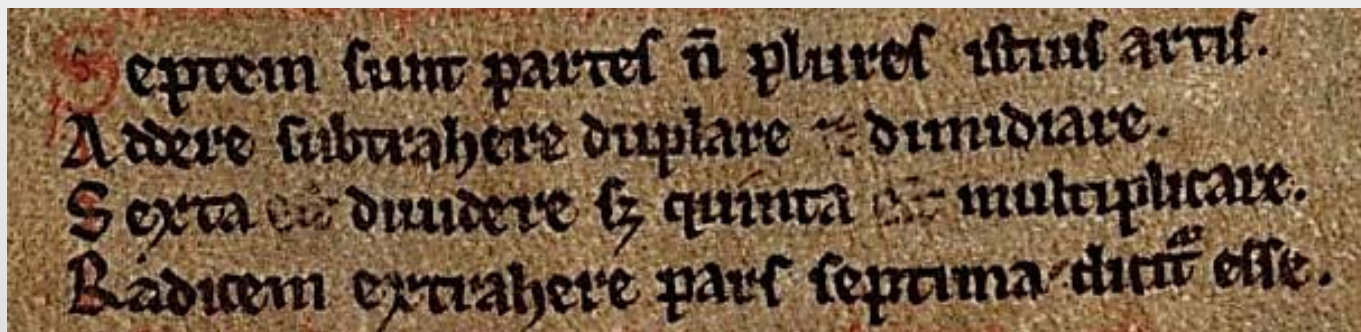 Septem sunt partes n̄ plures istius artis.
Addere subtrahere duplare dimidiare.
Sexta est diuidere sꝫ quinta est multiplicare.
Radicem extrahere pars septima dicit᷑ esse.